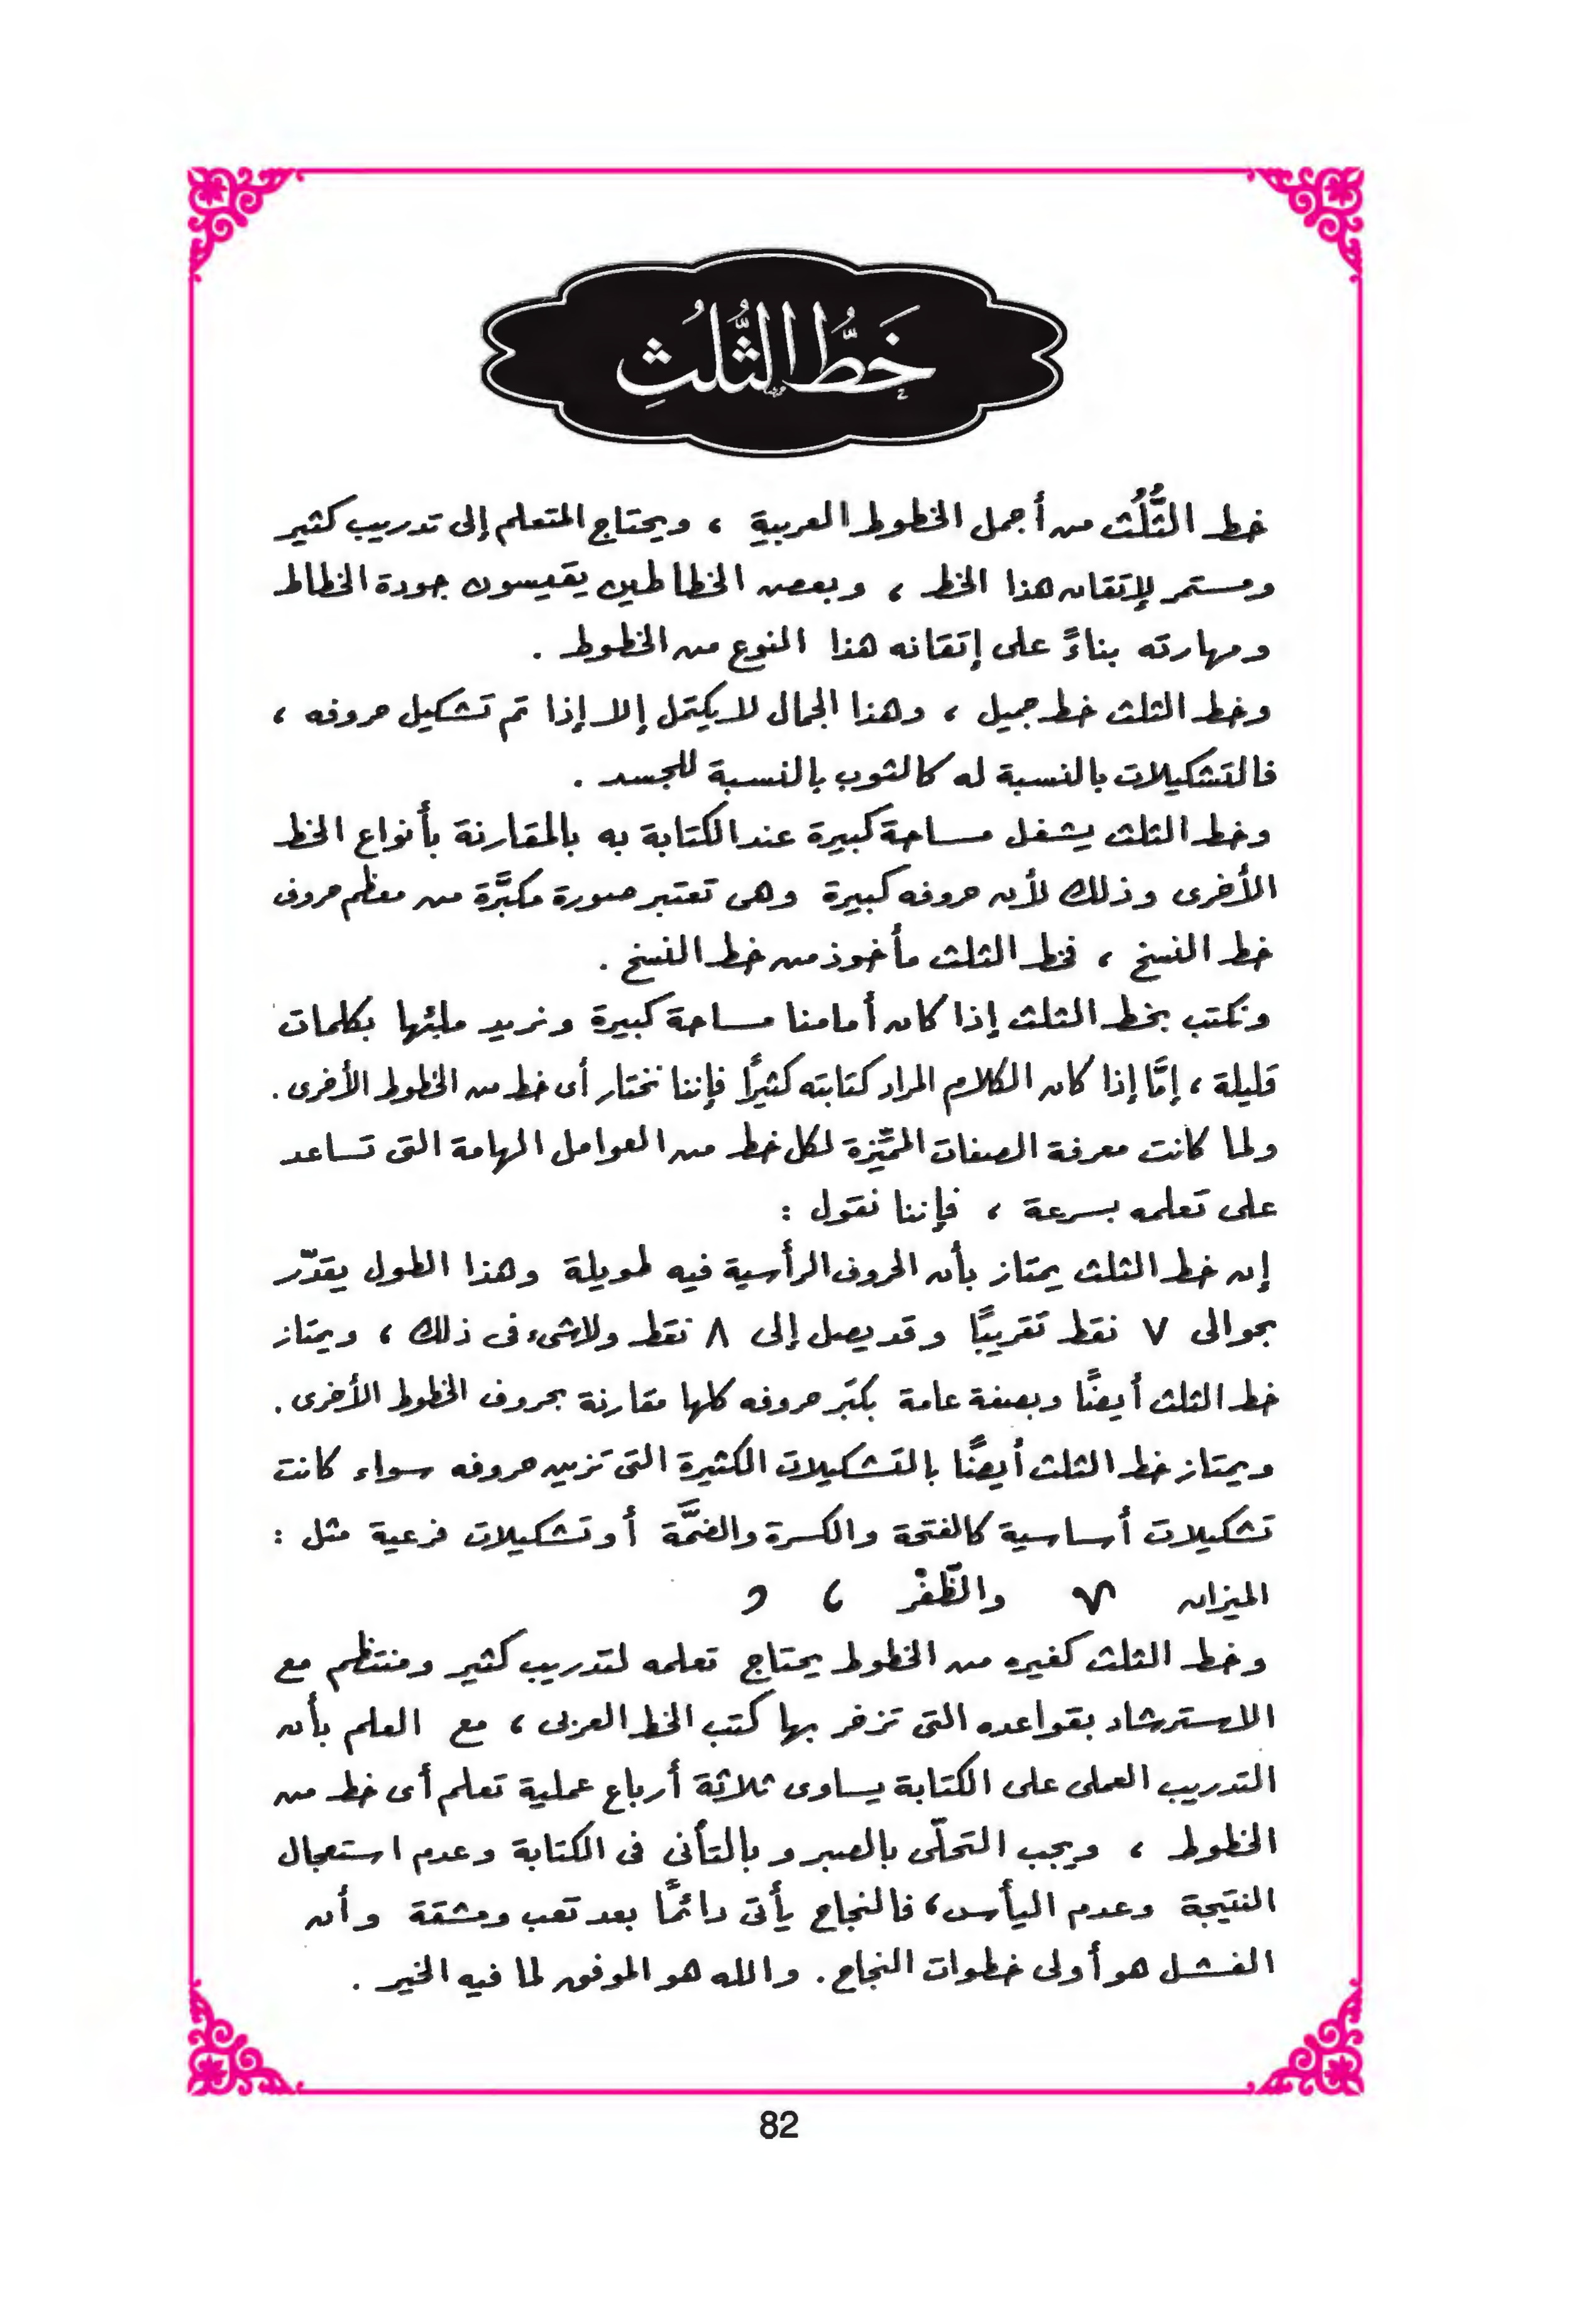 خَطُّ الثُّلُثِ
خط الثُّلُث من أجمل الخطوط العربية ، ويحتاج المتعلم إلى تدريب كثير
ومستمر لإتقان هذا الخط ، وبعض الخطاطين يقيسون جودة الخطاط
ومهارته بناءً على إتقانه هذا النوع من الخطوط .
وخط الثلث خط جميل ، وهذا الجمال لا يكتمل إلا إذا تم تشكيل حروفه ،
فالتشكيلات بالنسبة له كالثوب بالنسبة للجسد .
وخط الثلث يشغل مساحة كبيرة عند الكتابة به بالمقارنة بأنواع الخط
الأخرى وذلك لأن حروفه كبيرة وهى تعتبر صورة مكبَّرة من معظم حروف
خط النسخ ، فخط الثلث مأخوذ من خط النسخ .
ونكتب بخط الثلث إذا كان أمامنا مساحة كبيرة ونريد ملئها بكلمات
قليلة ، إمَّا إذا كان الكلام المراد كتابته كثيرًا فإننا نختار أى خط من الخطوط الأخرى .
ولما كانت معرفة الصفات المميِّزة لكل خط من العوامل الهامة التى تساعد
على تعلمه بسرعة ، فإننا نقول :
إن خط الثلث يمتاز بأن الحروف الرأسية فيه طويلة وهذا الطول يقدّر
بحوالى ٧ نقط تقريبًا وقد يصل إلى ٨ نقط ولا شىء فى ذلك ، ويمتاز
خط الثلث أيضًا وبصفة عامة بكبَر حروفه كلها مقارنة بحروف الخطوط الأخرى .
ويمتاز خط الثلث أيضًا بالتشكيلات الكثيرة التى تزين حروفه سواء كانت
تشكيلات أساسية كالفتحة والكسرة والضمَّة أو تشكيلات فرعية مثل :
الميزان والظُّفْر ،
وخط الثلث كغيره من الخطوط يحتاج تعلمه لتدريب كثير ومنتظم مع
الاسترشاد بقواعده التى تزخر بها كتب الخط العربى ، مع العلم بأن
التدريب العملى على الكتابة يساوى ثلاثة أرباع عملية تعلم أى خط من
الخطوط ، ويجب التحلّى بالصبر و بالتأنى فى الكتابة وعدم استعجال
النتيجة وعدم اليأس ، فالنجاح يأتى دائمًا بعد تعب ومشقة وأن
الفشل هو أولى خطوات النجاح . والله هو الموفق لما فيه الخير .
82